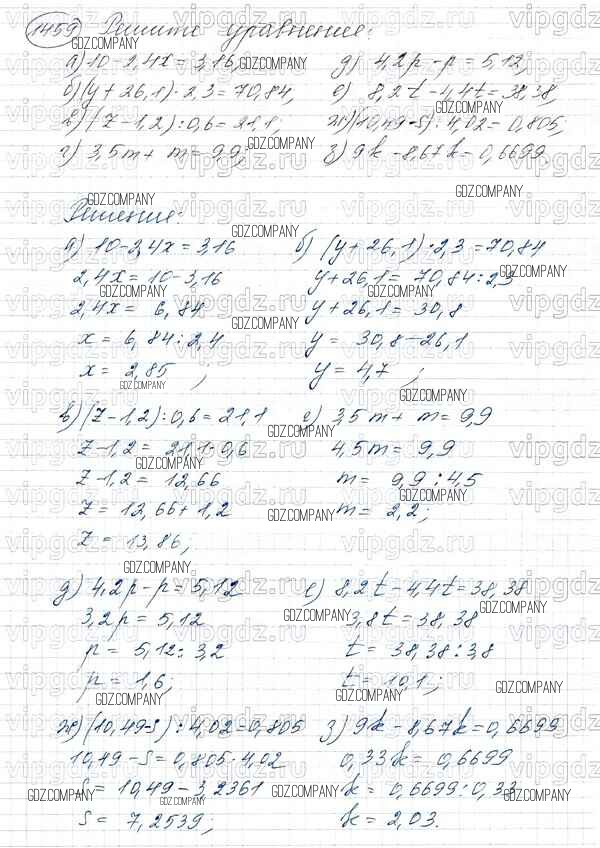 1459 Решите уравнение:
а) 10 - 2,4x = 3,16; д) 4,2p - p = 5,12;
б) (y + 26,1) · 2,3 = 70,84; е) 8,2t - 4,4t = 38,38;
в) (z - 1,2) : 0,6 = 21,1; ж) (10,49 - s) : 4,02 = 0,805;
г) 3,5m + m = 9,9; з) 9k - 8,67k = 0,6699.
Решение:
а) 10 - 2,4x = 3,16 б) (y + 26,1) · 2,3 = 70,84
2,4x = 10 - 3,16 y + 26,1 = 70,84 : 2,3
2,4x = 6,84 y + 26,1 = 30,8
x = 6,84 : 2,4 y = 30,8 - 26,1
x = 2,85; y = 4,7;
в) (z - 1,2) : 0,6 = 21,1 г) 3,5m + m = 9,9
z - 1,2 = 21,1 · 0,6 4,5m = 9,9
z - 1,2 = 12,66 m = 9,9 : 4,5
z = 12,66 + 1,2 m = 2,2;
z = 13,86;
д) 4,2p - p = 5,12 е) 8,2t - 4,4t = 38,38
3,2p = 5,12 3,8t = 38,38
p = 5,12 : 3,2 t = 38,38 : 3,8
p = 1,6; t = 10,1;
ж) (10,49 - s) : 4,02 = 0,805 з) 9k - 8,67k = 0,6699
10,49 - s = 0,805 · 4,02 0,33k = 0,6699
s = 10,49 - 3,2361 k = 0,6699 : 0,33
s = 7,2539; k = 2,03.
GDZ.COMPANY
vipgdz.ru